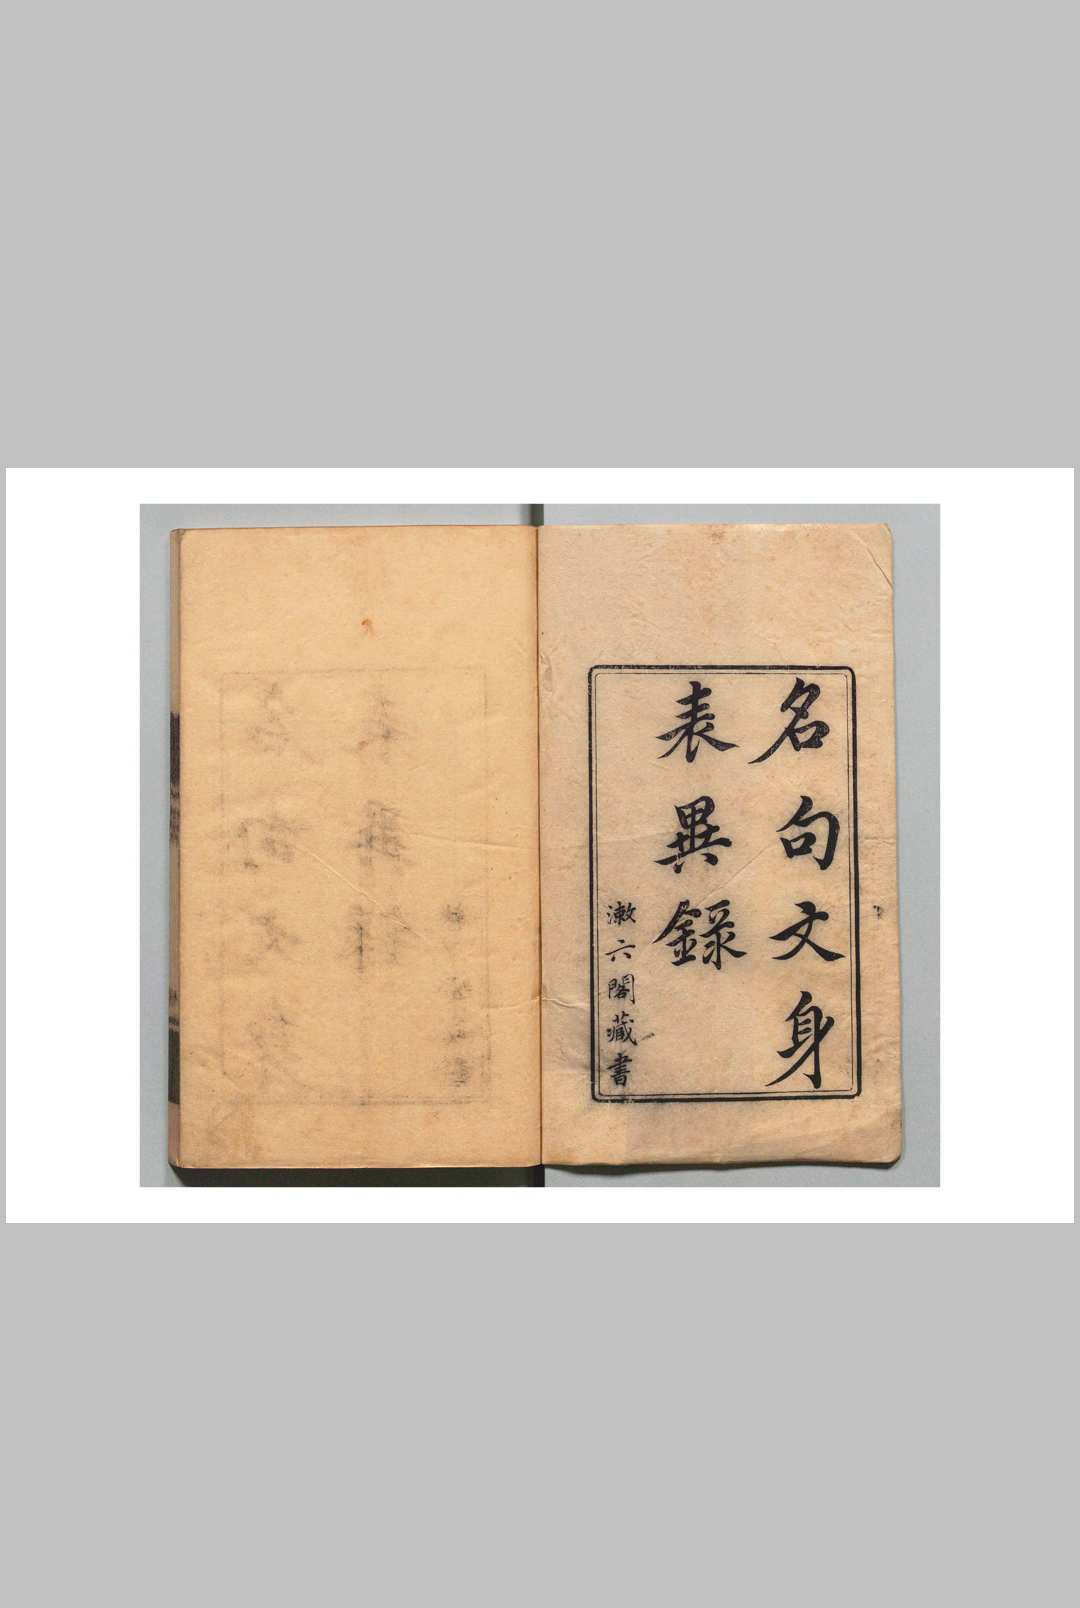 名句文身
表異錄
漱六閣藏書